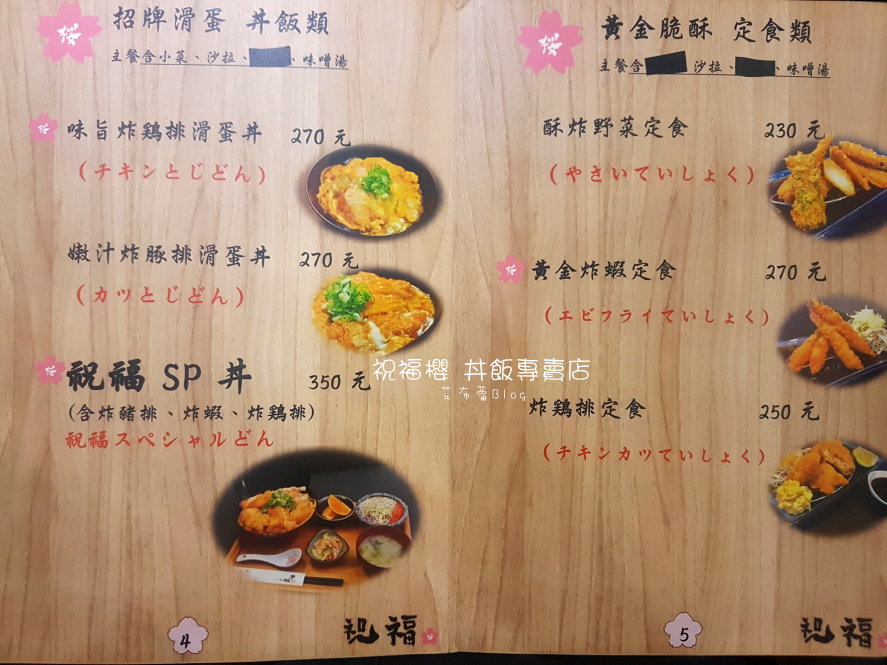 櫻
招牌滑蛋 丼飯類
主餐含小菜、沙拉、 、味噌湯
櫻
味旨炸鶏排滑蛋丼 270 元
(チキンとじどん)
嫩汁炸豚排滑蛋丼 270 元
(カツとじどん)
櫻
祝福 SP 丼 350 元
(含炸豬排、炸蝦、炸鶏排)
祝福スペシャルどん
4
祝福
櫻
黃金脆酥 定食類
主餐含 沙拉、 、味噌湯
酥炸野菜定食 230 元
(やさいていしょく)
櫻
黃金炸蝦定食 270 元
(エビフライていしょく)
炸鶏排定食 250 元
(チキンカツていしょく)
5
祝福
祝福櫻 丼飯專賣店
艾布蕾Blog